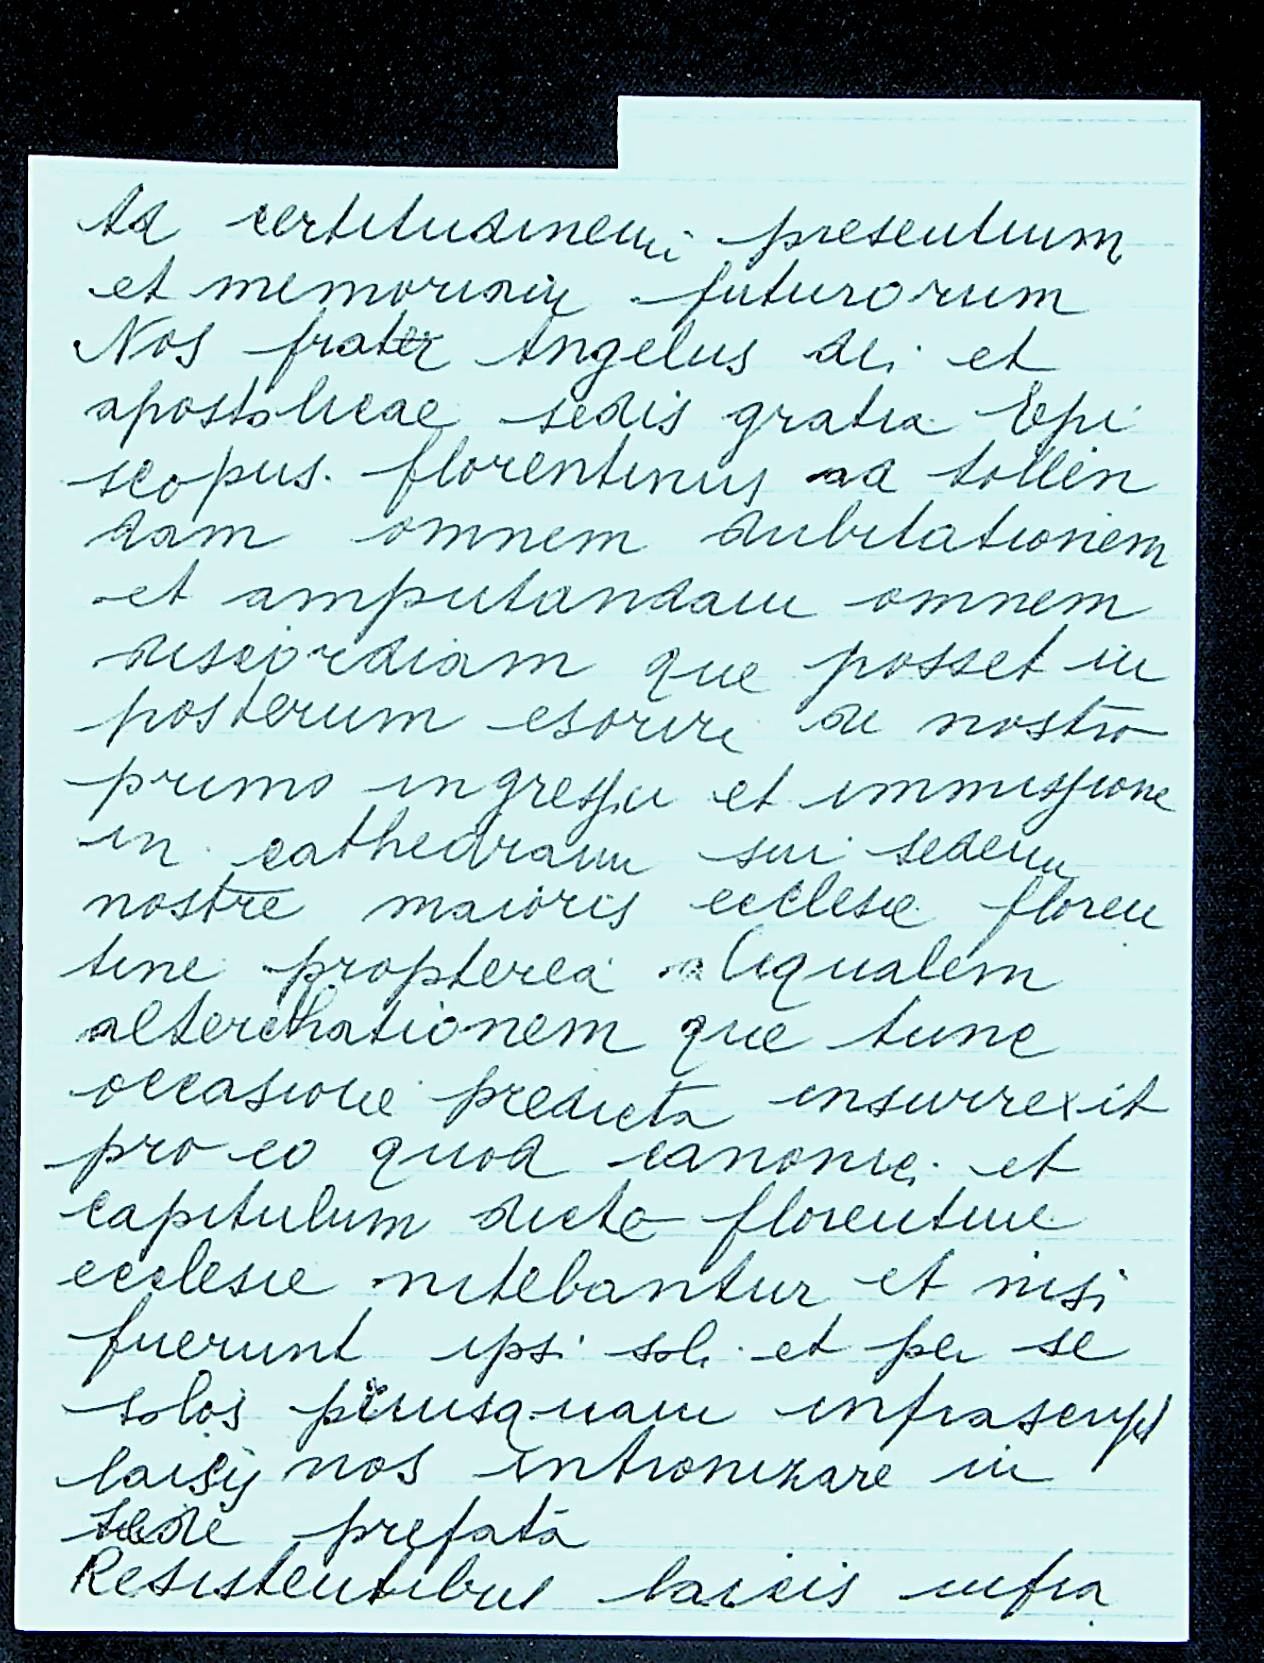 Ad certitudinem presentium
et memoriam futurorum
Nos frater Angelus dei et
apostolicae sedis gratia Epi
scopus florentinus ad tollen
dam omnem dubitationem
et amputandam omnem
discordiam que posset in
posterum esorire de nostro
primo ingressu et immissione
in cathedram sui sedem
nostre maioris ecclesie floren
tine propterea aliqualem
alterchationem que tunc
occasione predicta insurrexit
pro eo quod canonici et
capitulum dicte florentine
ecclesie nitebantur et nisi
fuerunt ipsi soli et per se
solos priusquam infrascript
laisij nos intronizare in
sede prefata
Resistentibus laicis infra